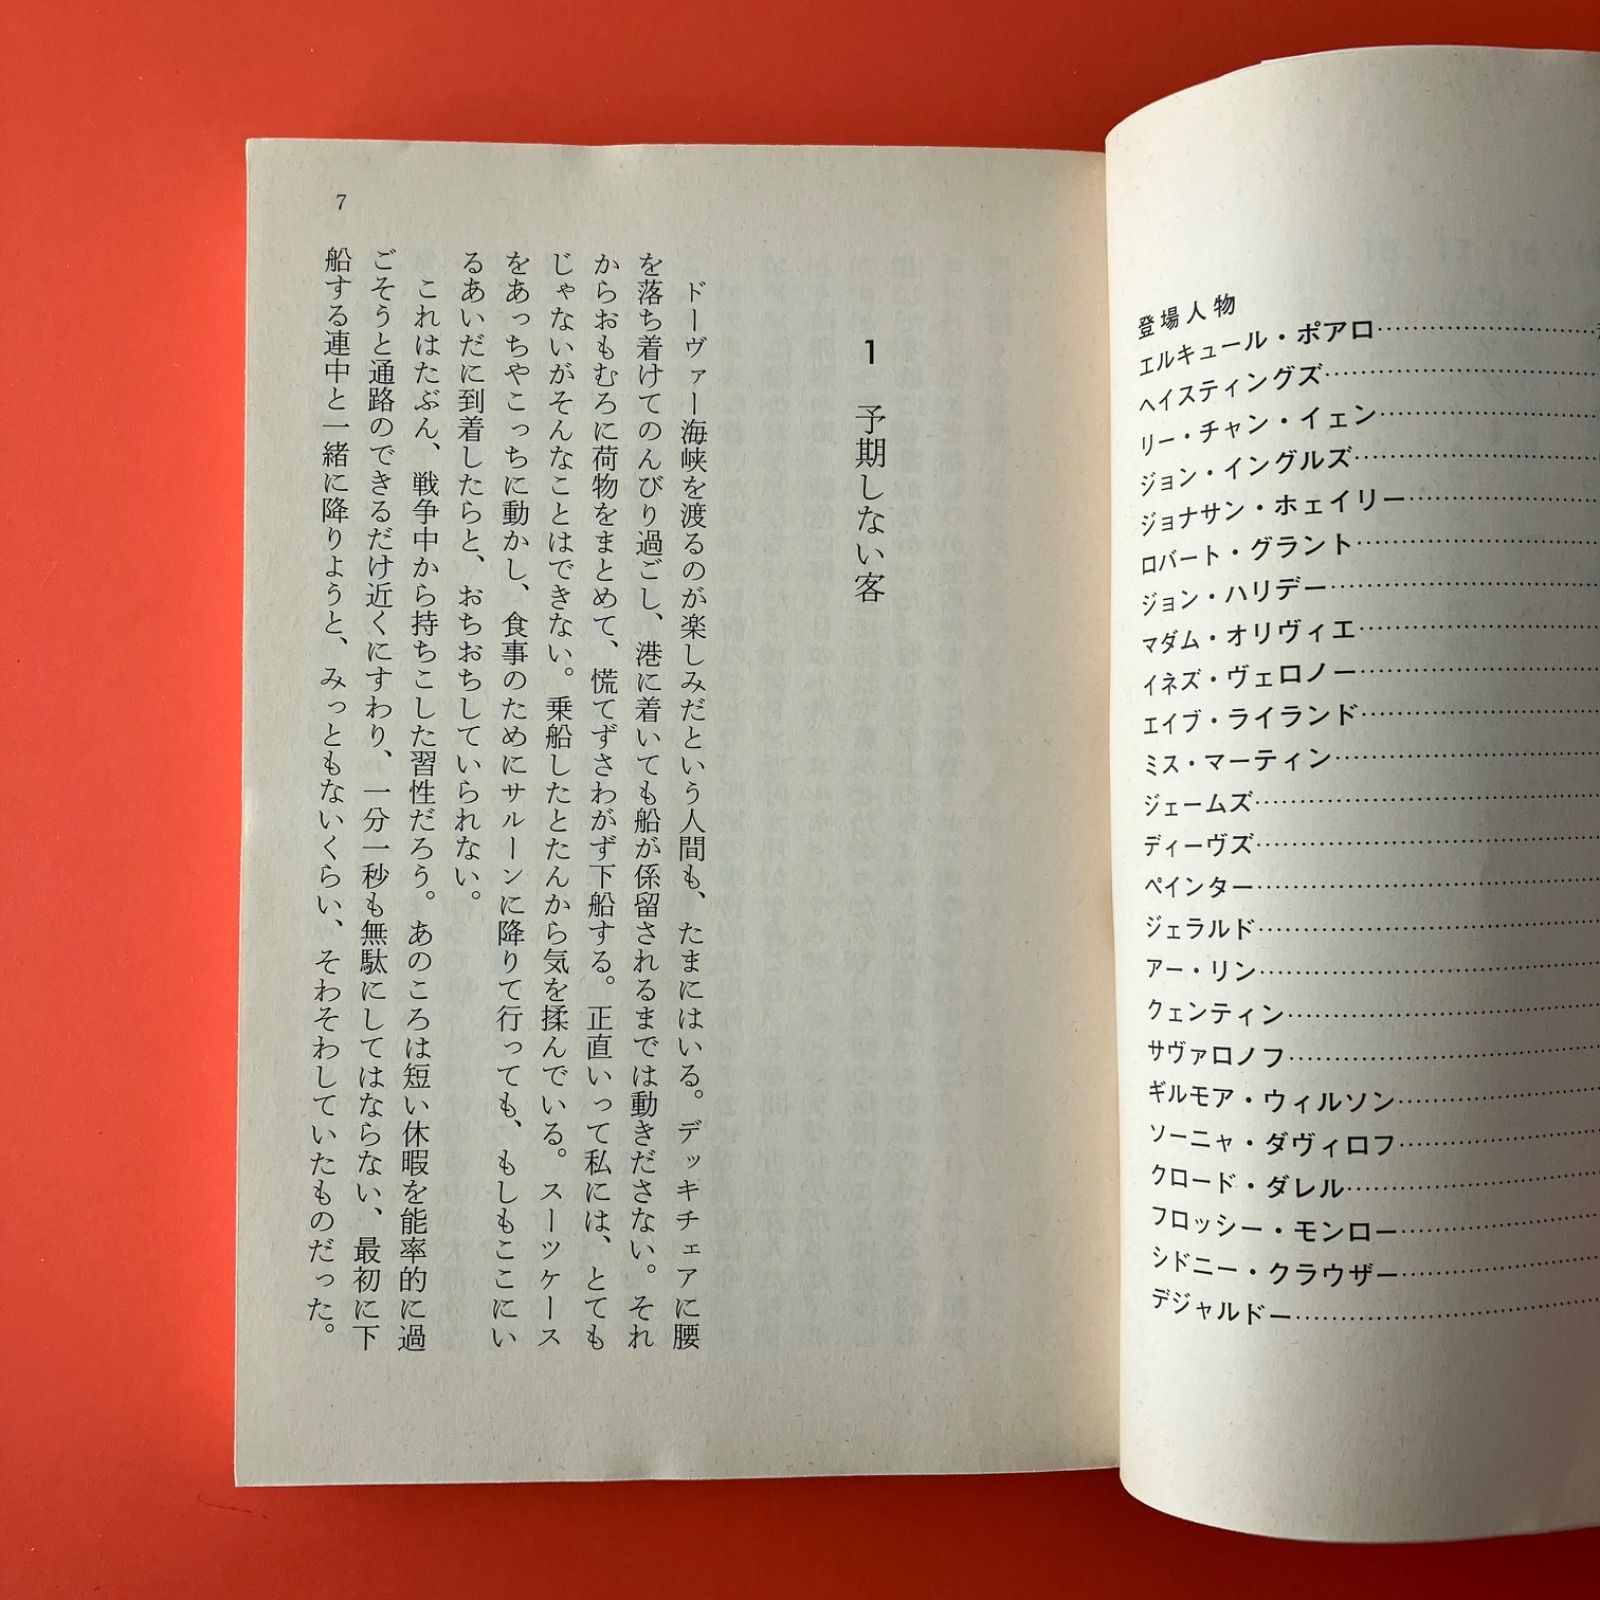 登場人物
エルキュール・ポアロ
ヘイスティングズ
リー・チャン・イェン
ジョン・イングルズ
ジョナサン・ホェイリー
ロバート・グラント
ジョン・ハリデー
マダム・オリヴィエ
イネズ・ヴェロノー
エイブ・ライランド
ミス・マーティン
ジェームズ
ディーヴズ
ペインター
ジェラルド
アー・リン
クェンティン
サヴァロノフ
ギルモア・ウィルソン
ソーニャ・ダヴィロフ
クロード・ダレル
フロッシー・モンロー
シドニー・クラウザー
デジャルドー
1 予期しない客
ドーヴァー海峡を渡るのが楽しみだという人間も、たまにはいる。デッキチェアに腰
を落ち着けてのんびり過ごし、港に着いても船が係留されるまでは動きださない。それ
からおもむろに荷物をまとめて、慌てずさわがず下船する。正直いって私には、とても
じゃないがそんなことはできない。乗船したとたんから気を揉んでいる。スーツケース
をあっちやこっちに動かし、食事のためにサルーンに降りて行っても、もしもここにい
るあいだに到着したらと、おちおちしていられない。
これはたぶん、戦争中から持ちこした習性だろう。あのころは短い休暇を能率的に過
ごそうと通路のできるだけ近くにすわり、一分一秒も無駄にしてはならない、最初に下
船する連中と一緒に降りようと、みっともないくらい、そわそわしていたものだった。
7